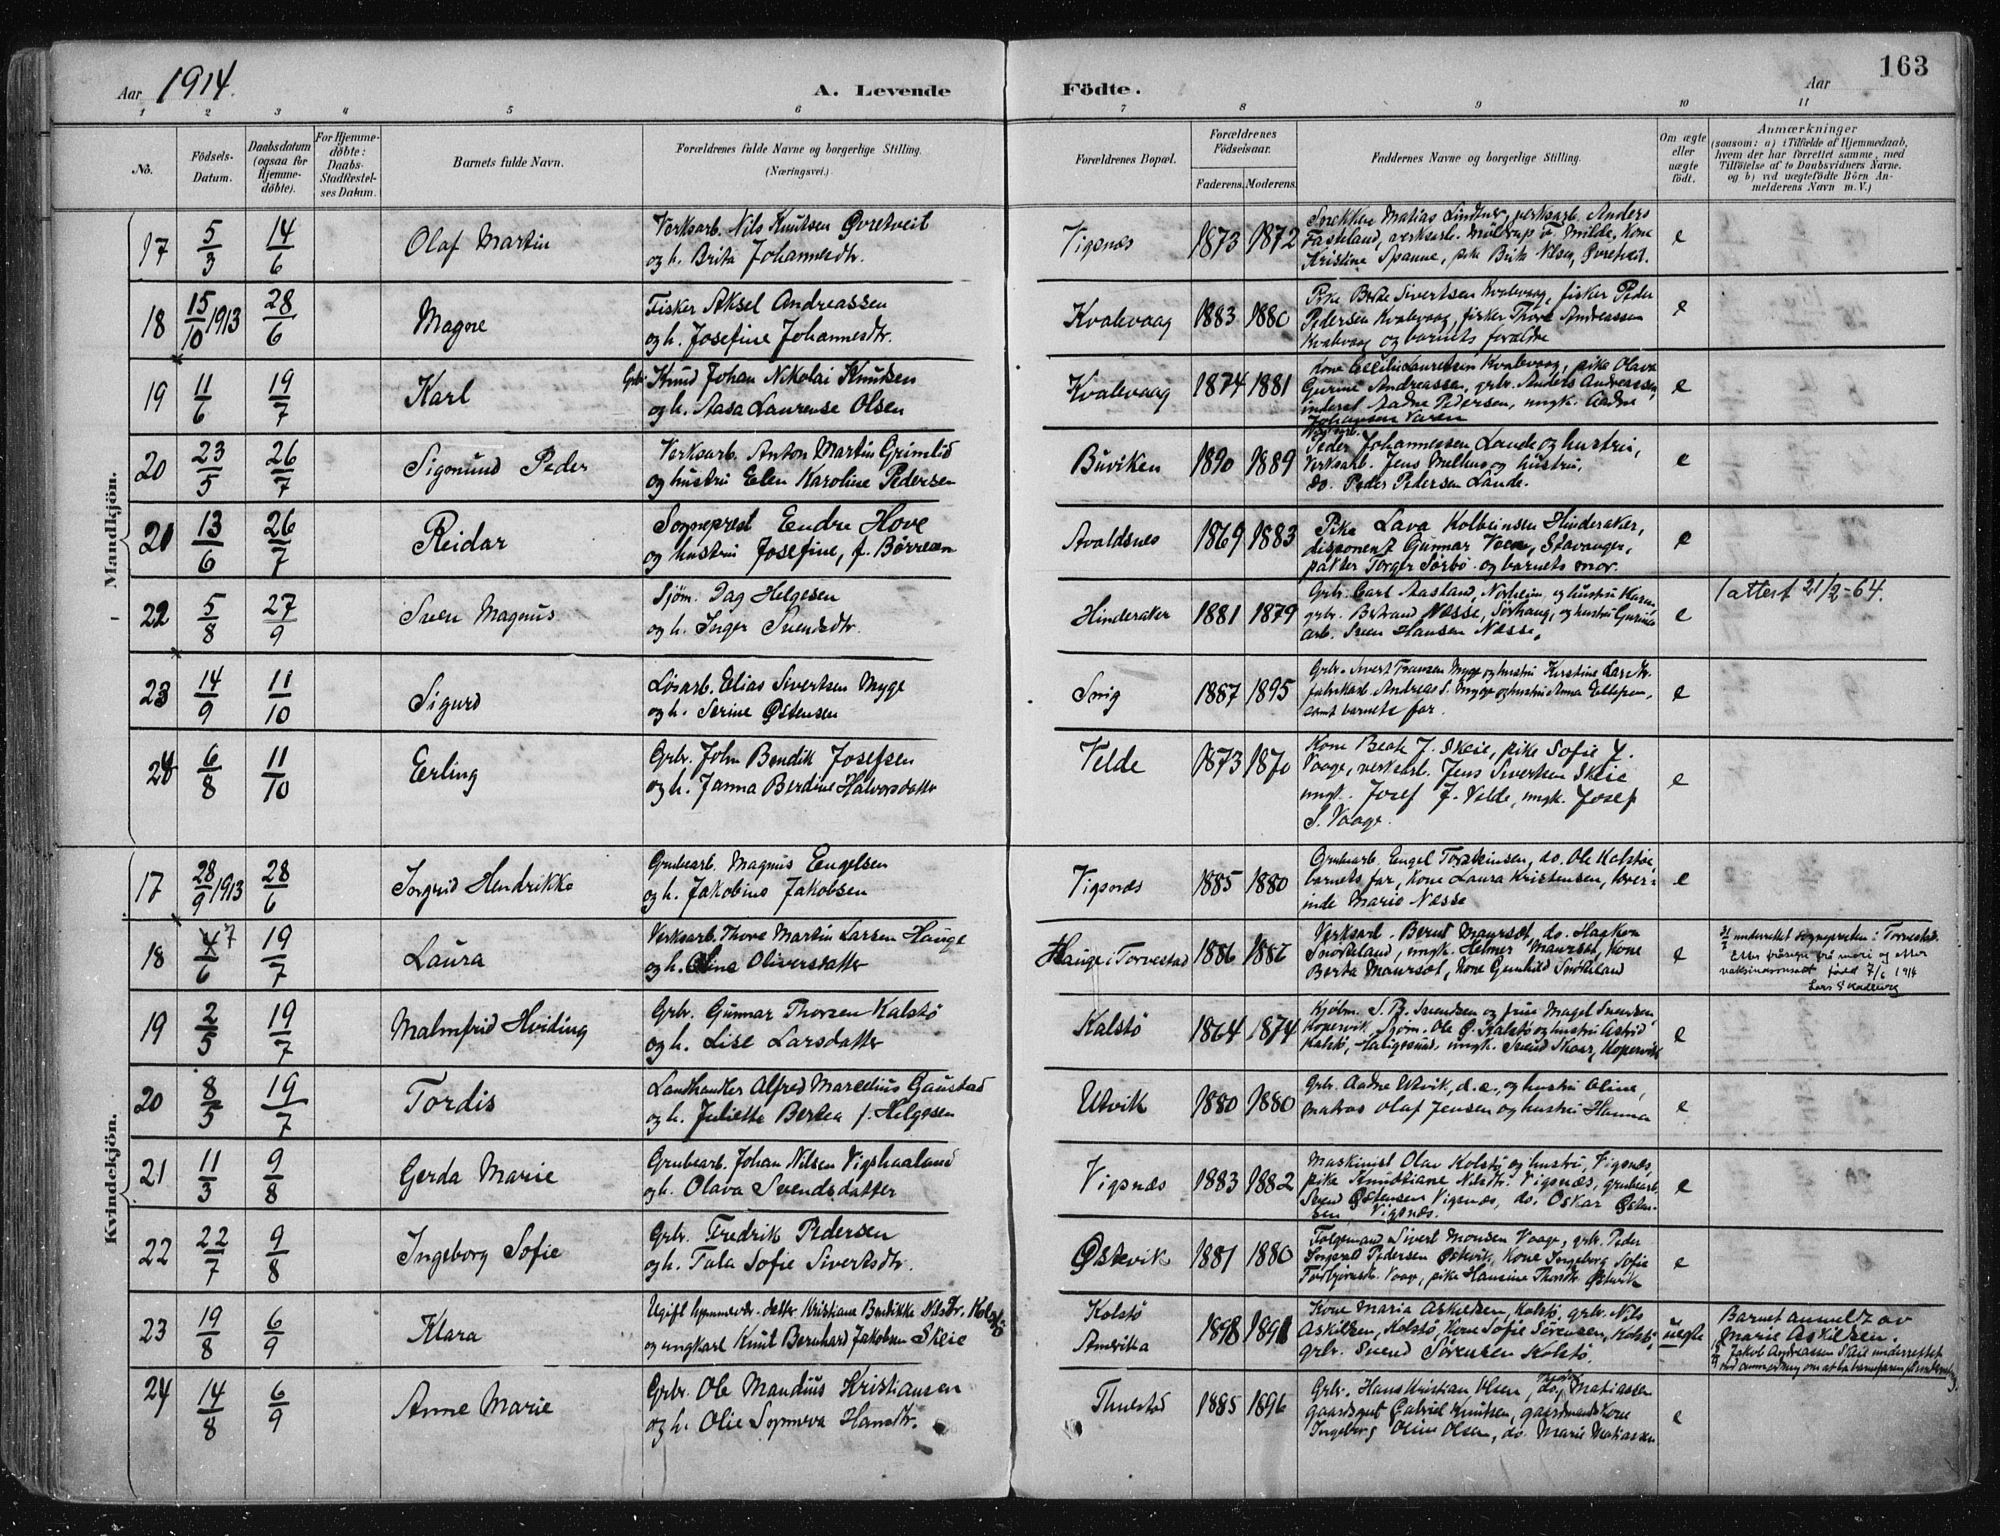 163
Aar 1914.
A. Levende Födte.
Aar
1 2 3 4 5 6 7 8 9 10 11
No.
Födsels-Datum.
Daabsdatum (ogsaa for Hjemme-døbte).
For Hjemme-døbte: Daabs-Stadfæstelses Datum.
Barnets fulde Navn.
Forældrenes fulde Navne og borgerlige Stilling. (Næringsvei.)
Forældrenes Bopæl.
Forældrenes Födselsaar.
Faderens. Moderens.
Faddernes Navne og borgerlige Stilling.
Om ægte eller uægte født.
Anmærkninger
(saasom: a) i Tilfælde af Hjemmedaab, hvem der har forrettet samme, med Tilföielse af to Daabsvidners Navne. og b) ved uægtefödte Börn Anmelderens Navn m. V.)
Mandkjön.
17 5/3 14/6 Olaf Martin Verksarb. Nils Knutsen Øvretveit Vigsnæs 1873 1872 Snekker Matias Lindtner, verksarb. Anders
og h. Brita Johannesdtr. Fasteland, verksarb. Milde, Kone e
Kristine Spanne, pike
18 15/10 1913 28/6 Magne Fisker Aksel Andreassen Kvalevaag 1883 1880 Pike Berte Sivertsen Kvalevaag, fisker Peder e
og h. Josefine Johannesdtr. Pedersen Kvalevaag, fisker Thore Andreassen
Kvalevaag og barnets forældre
19 11/6 19/7 Karl Grbr. Knud Johan Nikolai Knutsen Kvalevaag 1874 1881 Kone Lauretsen Kvalevaag, pike Olava e
og h. Aasa Laurense Olsen Gurine Andreassen, grbr. Anders Andreassen,
inderst Aadne Pedersen, ungk. Aadne
Johansen
20 23/5 26/7 Sigmund Peder Verksarb. Anton Martin Grimlid Buviken 1890 1889 Peder Johannessen Lande og hustru, e
og hustru Elen Karoline Pedersen Verksarb. Jens Melhus og hustru,
do. Peder Pedersen Lande.
21 13/6 26/7 Reidar Sogneprest Endre Hove Avaldsnes 1869 1883 Pike Lava Kolbeinsen Hinderaker, e
og hustru Josefine, f. Børresen disponent Gunnar Stavanger,
Torger Sørbø og barnets mor.
22 5/8 27/9 Sven Magnus Sjøm. Dag Helgesen Hinderaker 1881 1879 Grbr. Carl Aasland, Norheim, og hustru e 1 attest 21/2-64.
og h. Inger Svendsdtr. grbr. Næsse, Sørhaug, og hustru
arb. Sven Hansen Næsse,
23 14/9 11/10 Sigurd Løsarb. Elias Sivertsen Myge Snig 1887 1895 Grbr. Sivert Fransen Myge og hustru Kirstine Larsdtr. e
og h. Serine Østensen fabrikarb. Andreas S. Myge og hustru Anna
samt barnets far.
24 6/8 11/10 Erling Grbr. John Bendik Josefsen Velde 1873 1870 Kone Beate J. Skeie, pike Sofie J. e
og h. Janna Berdine Halvorsdatter Vaage, verksarb. Jens Sivertsen Skeie
ungk. Josef J. Velde, ungk. Josef
S. Vaage.
Kvindekjön.
17 28/9 1913 28/6 Torgrid Hendrikke Grubearb. Magnus Engelsen Vigsnæs 1885 1880 Grubearb. Engel Torkelnsen, do. Ole Kalstø, e
og h. Jakobine Jakobsen barnets far, Kone Laura Kristensen, lærer-
inde Marie Næsse
18 7/6 19/7 Laura Verksarb. Thore Martin Larsen Hauge Hauge i Torvestad 1886 1886 Verksarb. Bernt Maursæt, do. Haakon e 31/7 underrettet sogneprsten i Torvestad.
og h. Oline Oliversdatter Snørteland, ungk. Helmer Maursæt, Kone Efter frasegn fra mori og efter
Berta Maursæt, Kone Gunhild vaksinasjonsatt. født 7/6 1914
19 2/5 19/7 Malmfrid Hviding Grbr. Gunnar Thorsen Kalstø Kalstø 1864 1874 Kjøbm. S. B. Svendsen og frue Magel Svendsen, e
og h. Lise Larsdatter Kopervik, Sjøm. Ole G. Kalstø og hustru Astrid
Kalstø, Haugesund, ungk. Svend Skaar, Kopervik
20 8/5 19/7 Tordis Landhandler Alfred Marcelius Gaustad Utvik 1880 1880 Grbr. Aadne Utvik, d. e., og hustru Oline, e
og h. Juliette Bertea f. Helgesen matros Olaf Jensen og hustru Hanna
21 11/3 9/8 Gerda Marie Grubearb. Johan Nilsen Vigshaaland Vigsnæs 1883 1882 Maskinist Olav Kolstø og hustru, Vigsnæs, e
og h. Olava Svendsdatter pike Knudtiane Nilsdtr. Vigsnæs, grubearb.
Svend Østensen Vigsnæs, do. Oskar Østen-
sen Vigsnæs.
22 22/7 9/8 Ingeborg Sofie Grbr. Fredrik Pedersen Østevik 1881 1880 Følgemand Sivert Monsen Vaage, grbr. Peder e
og h. Tala Sofie Sivertsdtr. Pedersen Østevik, Kone Ingeborg Sofie
Torbjørnsdtr. Vaage, pike Hansine Thordtr. Østevik
23 19/8 6/9 Klara Ugift hjemmevær. datter Kristiane Bendikke Nilsdtr. Kolstø Kolstø 1898 1891 Kone Maria Askildsen, Kolstø, grbr. Nils uegte Barnet anmeldt av
og ungkarl Knut Bernhard Jakobsen Skeie Amerika Askildsen, Kolstø, Kone Sofie Sørensen, Kolstø, Marie Askildsen.
grbr. Svend Sørensen Kolstø. Jakob Andreassen Skeie underrettet
24 14/8 6/9 Anne Marie Grbr. Ole Mandius Kristiansen Thuestad 1885 1896 Grbr. Hans Kristian Olsen, do. Matiassen e
og h. Olie Synneva Hansdtr. gaardsgut Gabriel Knutsen, gaardmands Kone
Ingeborg Oline Olsen, do. Marie Matiassen